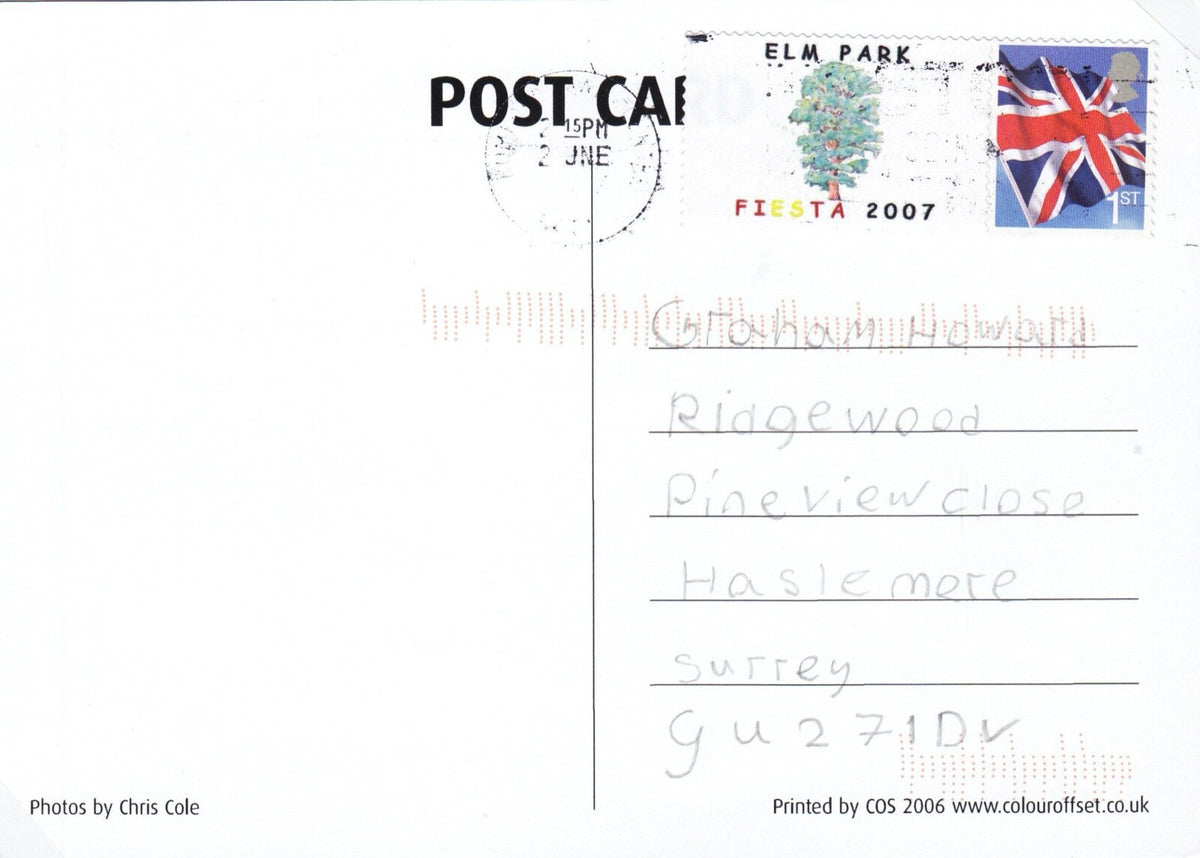 ELM PARK
POST CAR
15PM
2 JNE
FIESTA 2007
1ST
Graham Howard
Ridgewood
Pineview close
Haslemere
surrey
gu271DV
Photos by Chris Cole
Printed by COS 2006 www.colouroffset.co.uk